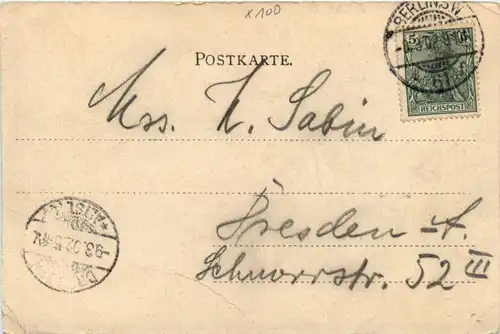 x100
POSTKARTE.
BERLIN S.W.
5
REICHSPOST
Mss. K. Sabin
Dresden-A.
Schnorrstr. 52 III